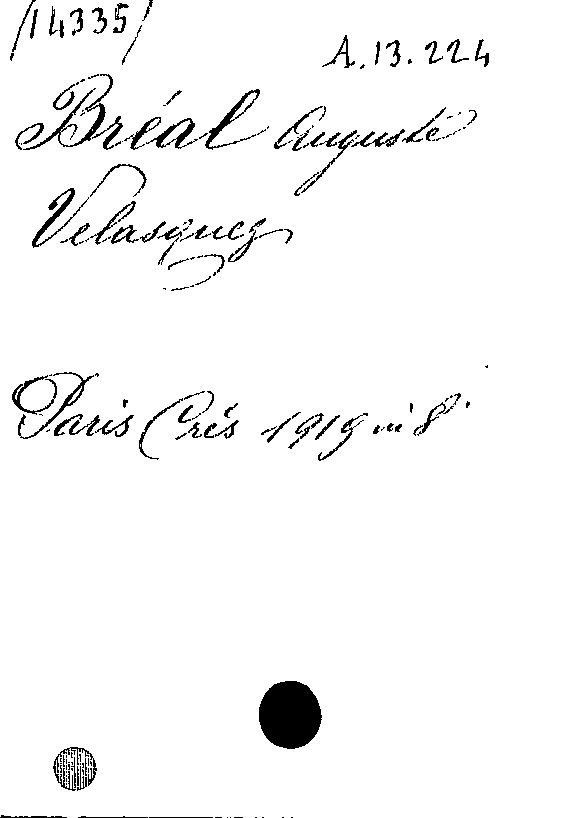 /14335/
A.13.224
Bréal Auguste
Velasquez
Paris Crés 1919 in 8°